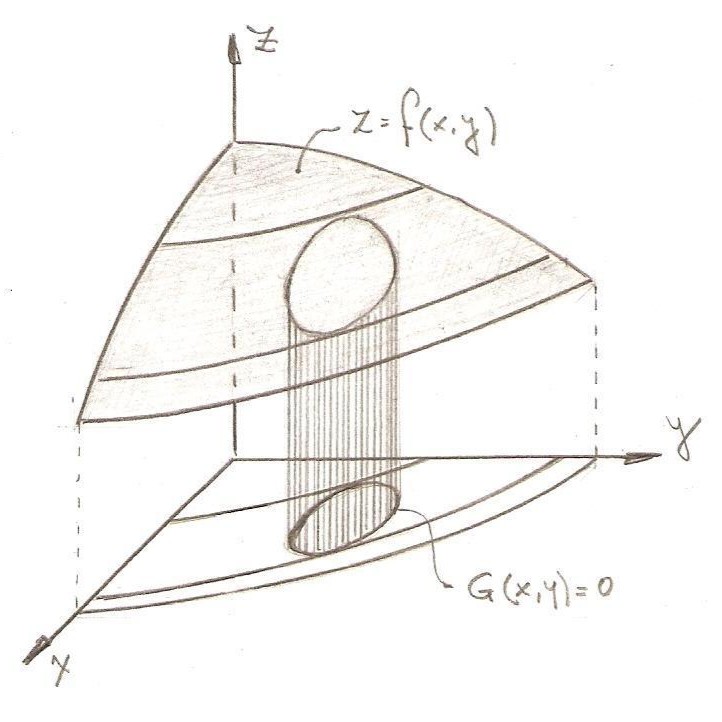 Z
Z=f(x,y)
y
G(x,y)=0
x